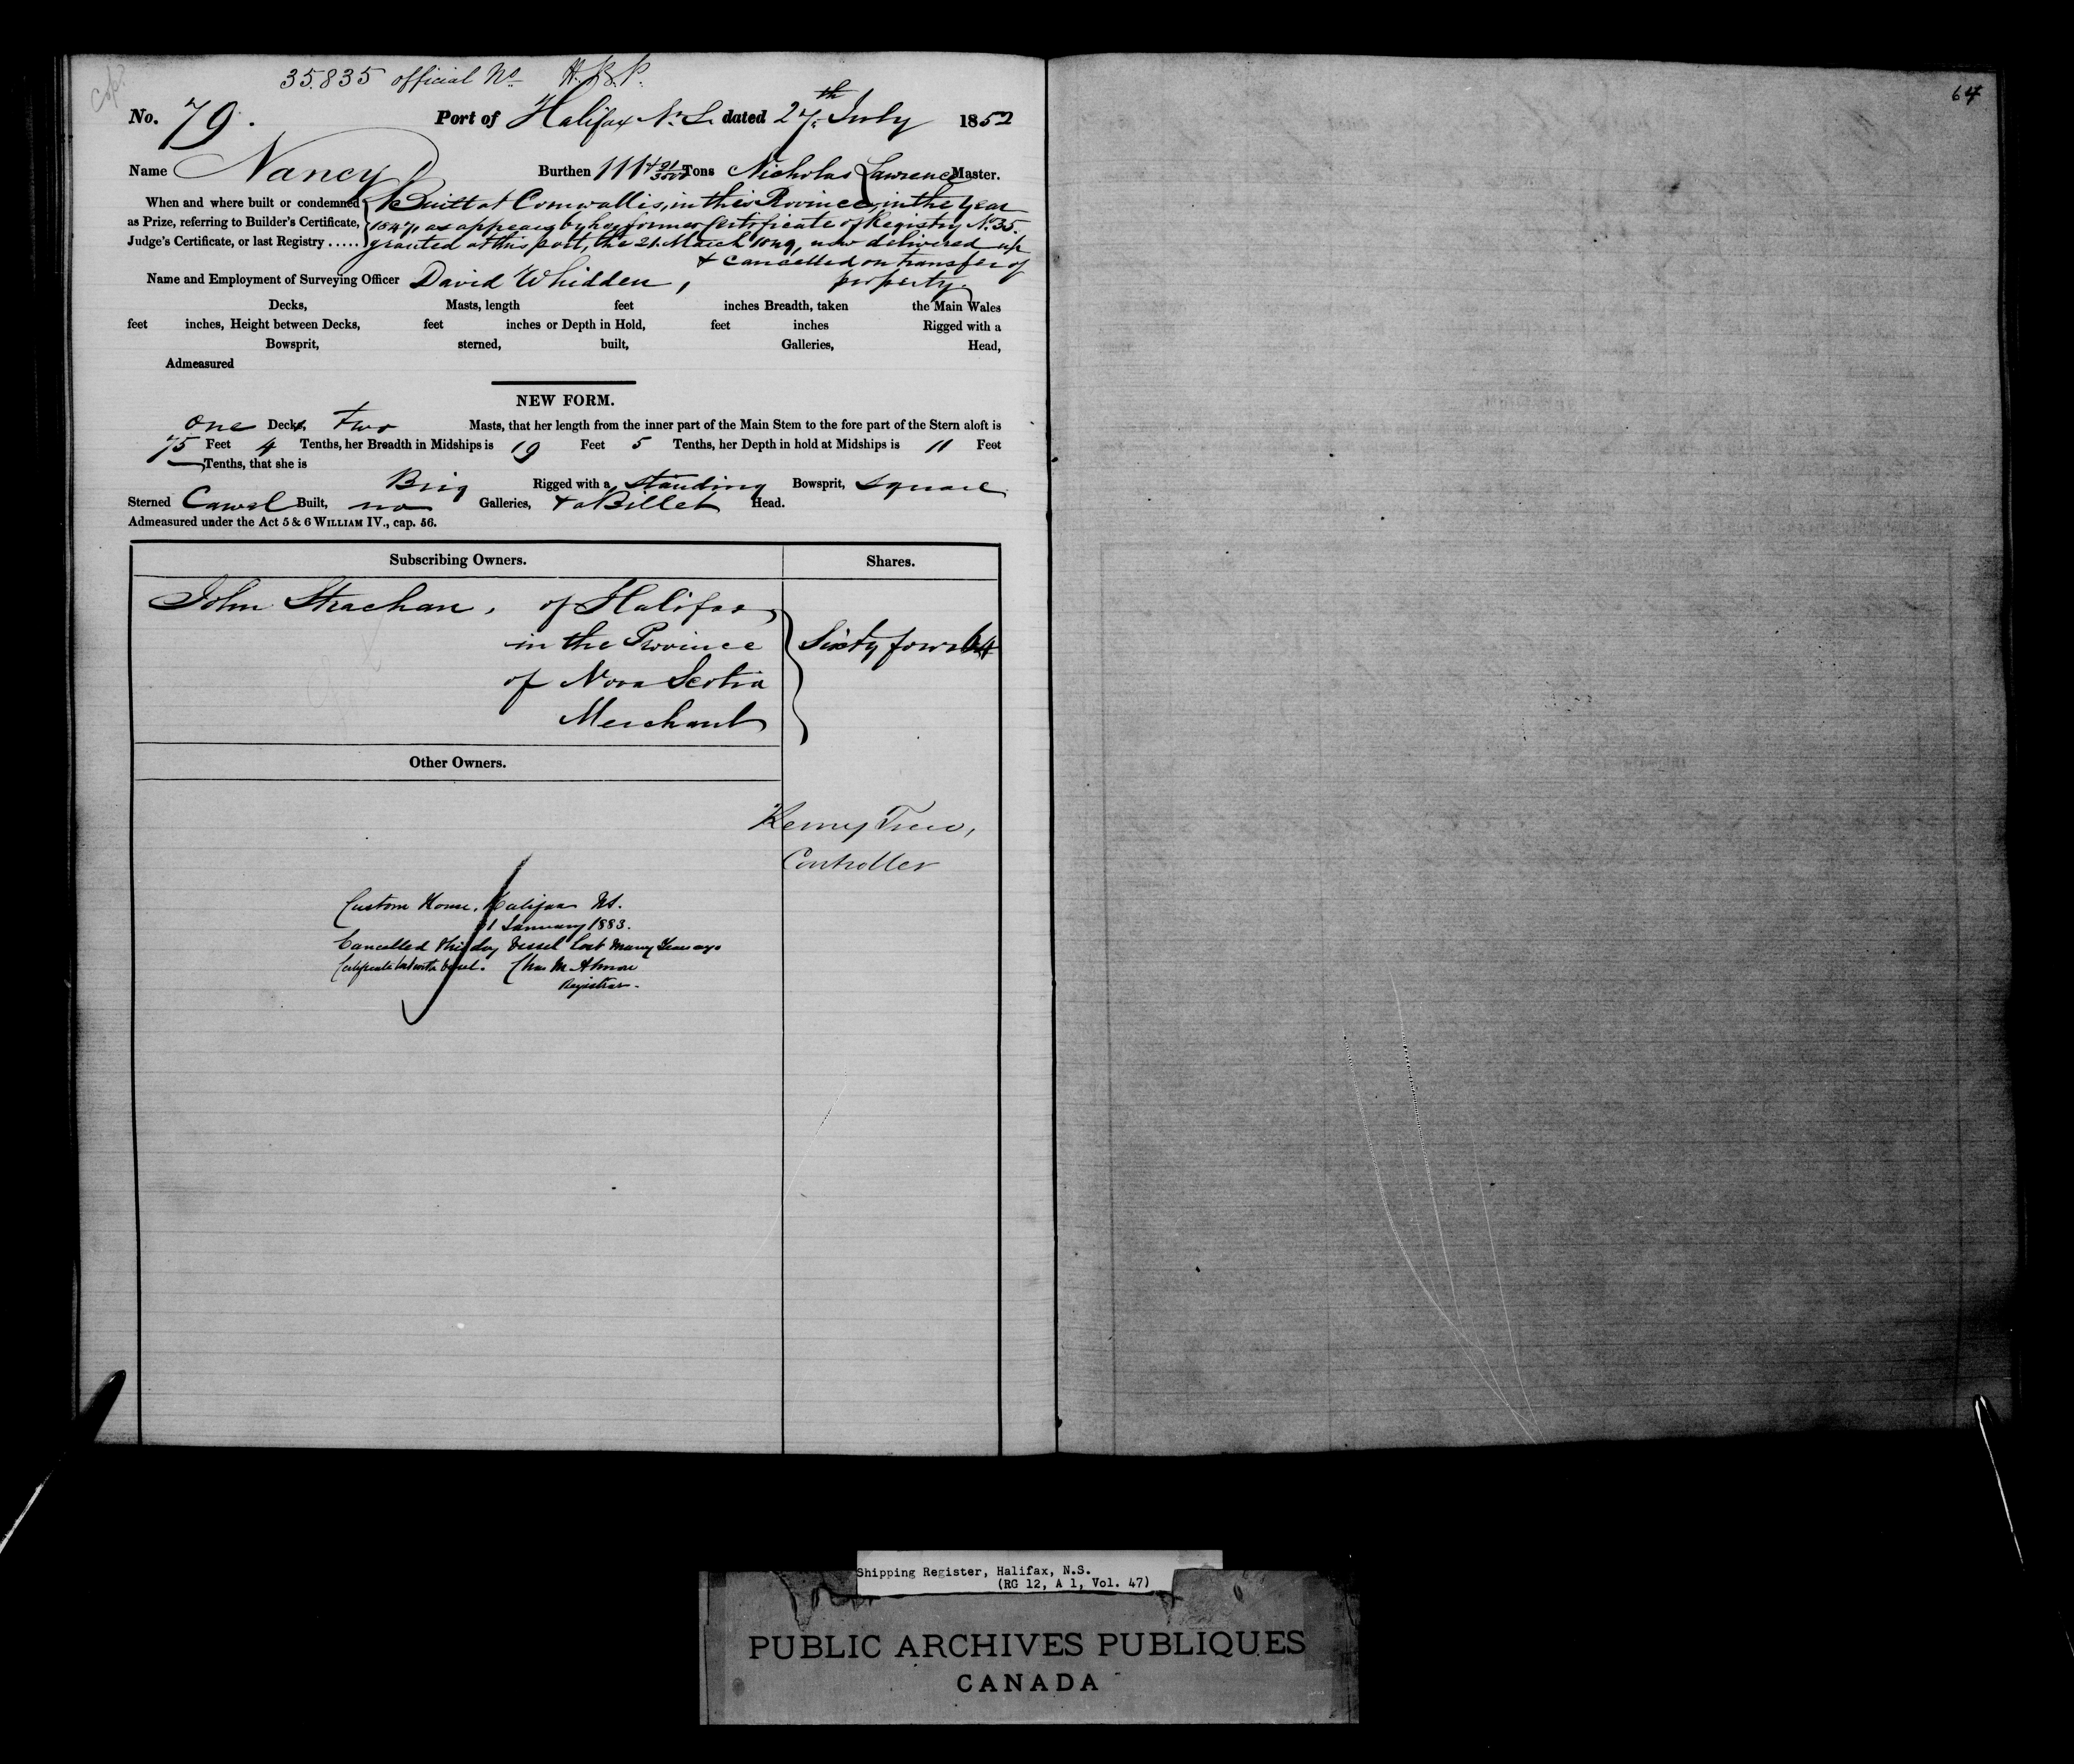 35.835 official No H.S.P.
No. 79. Port of Halifax N.S. dated 27th July 1852
Name Nancy Burthen 111 Tons Nicholas Lawrence Master.
When and where built or condemned as Prize, referring to Builder's Certificate, Judge's Certificate, or last Registry .....
Built at Cornwallis, in this Province, in the Year
1847, as appears by her former Certificate of Registry No. 35.
granted at this port, the 21 March 1849, now delivered up
& cancelled on transfer of
property.
Name and Employment of Surveying Officer David Whidden,
Decks, Masts, length feet inches Breadth, taken the Main Wales
feet inches, Height between Decks, feet inches or Depth in Hold, feet inches Rigged with a
Bowsprit, sterned, built, Galleries, Head,
Admeasured
NEW FORM.
one Deck, two Masts, that her length from the inner part of the Main Stem to the fore part of the Stern aloft is
75 Feet 4 Tenths, her Breadth in Midships is 19 Feet 5 Tenths, her Depth in hold at Midships is 11 Feet
— Tenths, that she is
Brig Rigged with a standing Bowsprit, square
Sterned Carvel Built, no Galleries, & a Billet Head.
Admeasured under the Act 5 & 6 WILLIAM IV., cap. 56.
Subscribing Owners. Shares.
John Strachan, of Halifax,
in the Province Sixty four 64
of Nova Scotia
Merchant
Other Owners.
Henry Trew,
Controller
Custom House, Halifax NS.
31 January 1883.
Cancelled this day Vessel lost many Years ago
Certificate lost with Vessel. Chas M. Almon
Registrar.
64
Shipping Register, Halifax, N.S.
(RG 12, A 1, Vol. 47)
PUBLIC ARCHIVES PUBLIQUES
CANADA